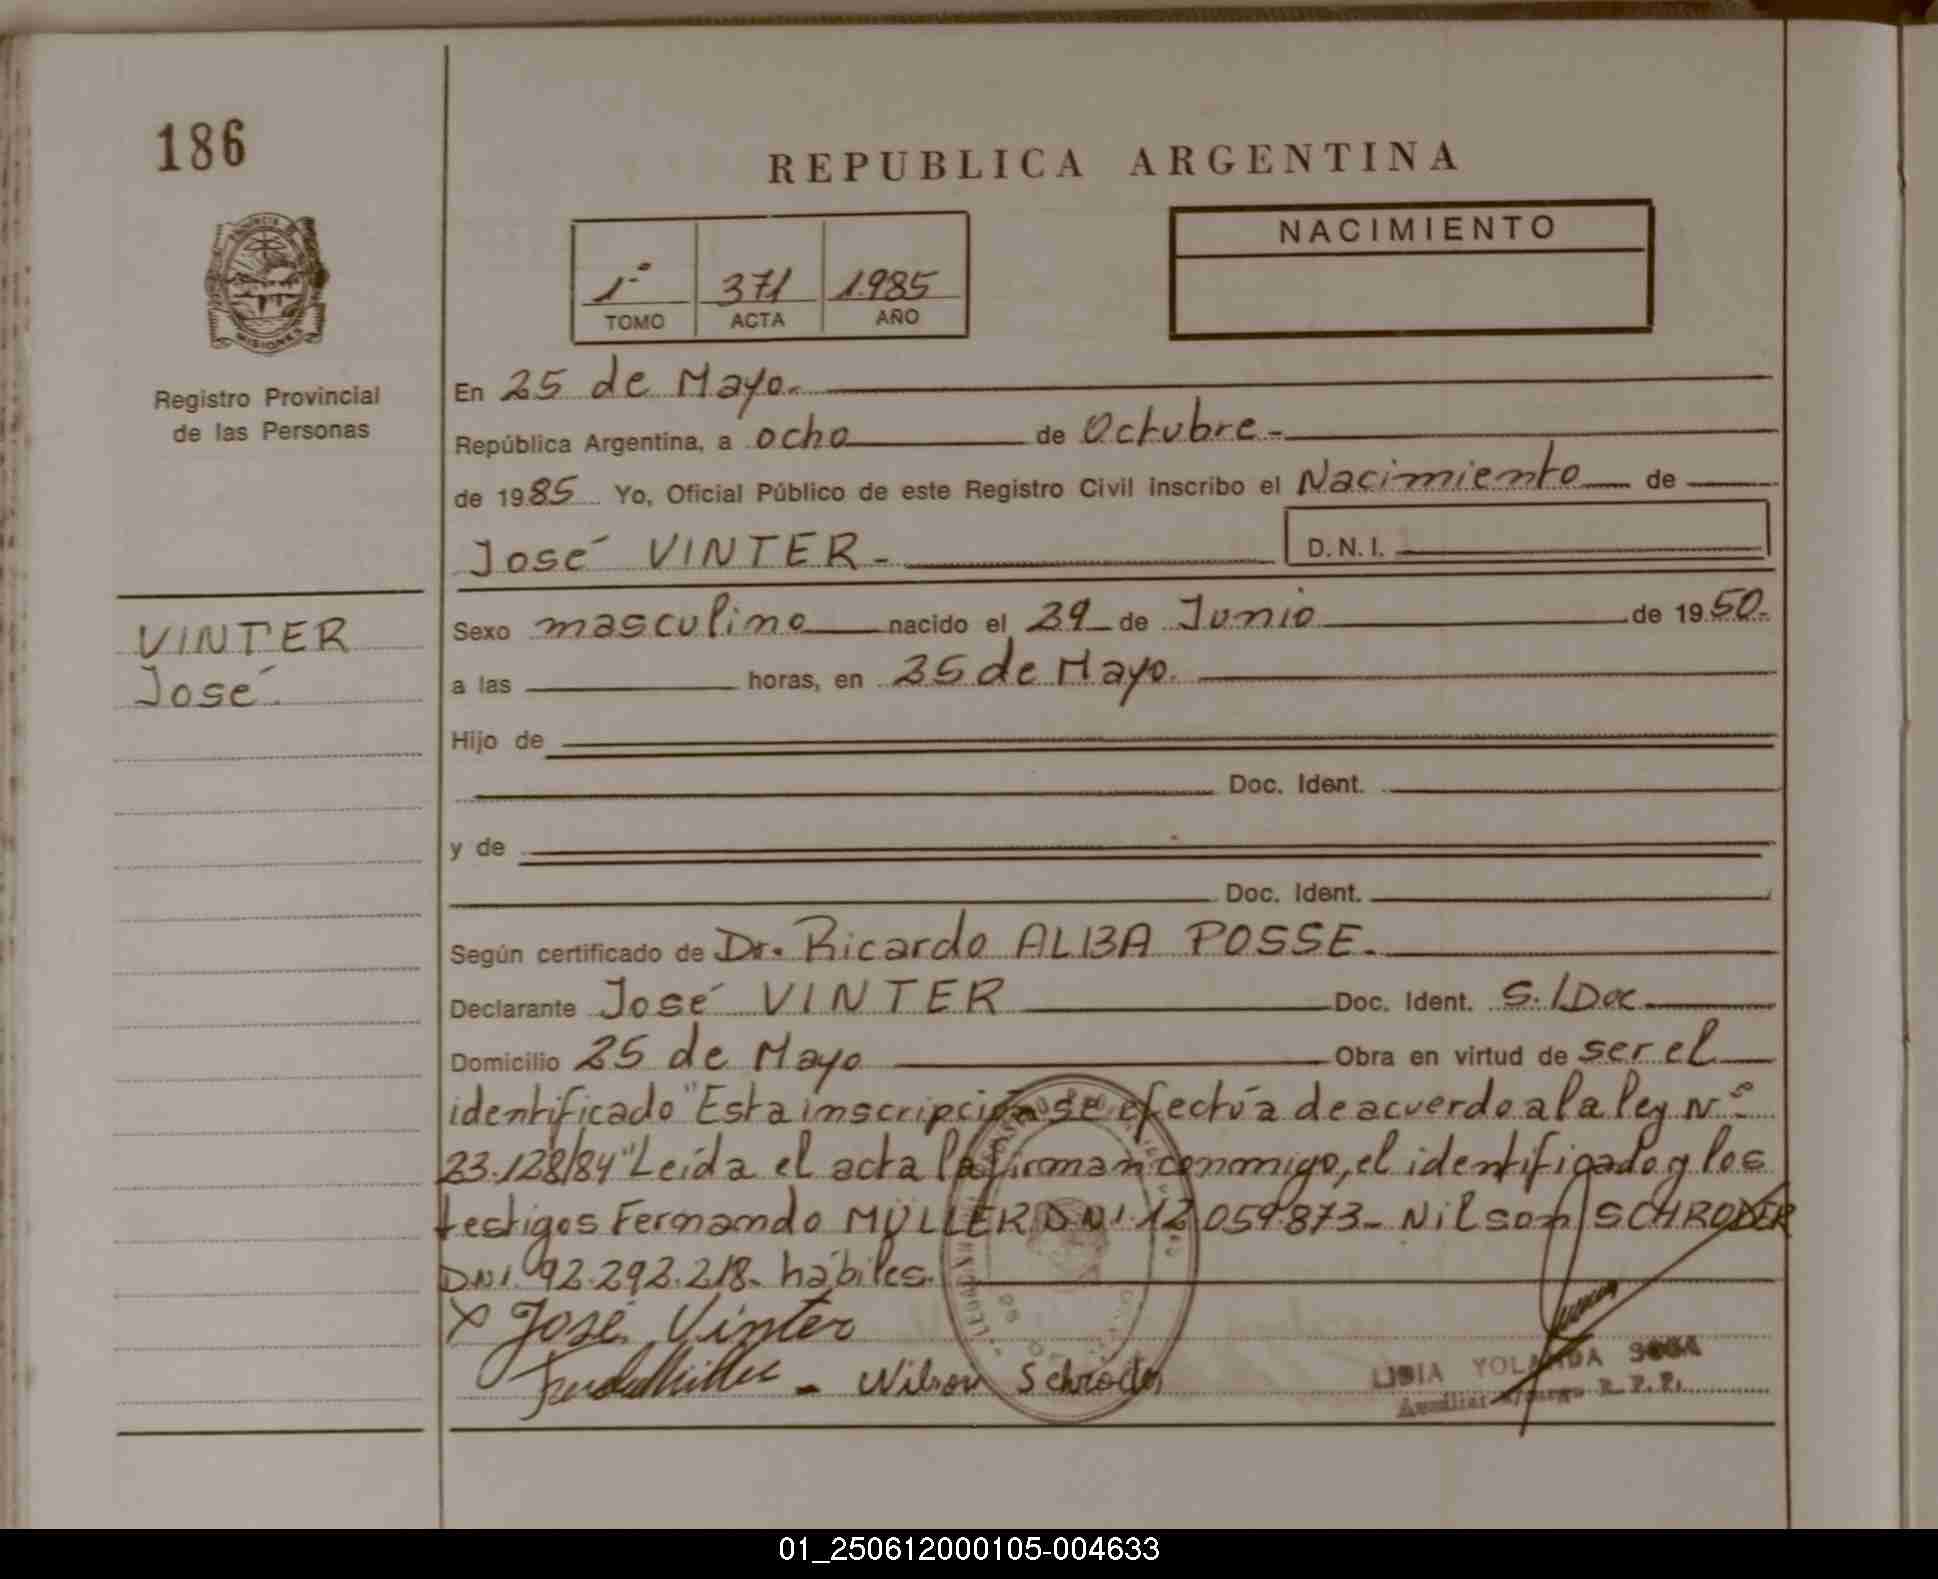 186
REPUBLICA ARGENTINA
NACIMIENTO
1º 371 1.985
TOMO ACTA AÑO
MISIONES
Registro Provincial
de las Personas
En 25 de Mayo.
República Argentina, a ocho de Octubre -
de 1985 Yo, Oficial Público de este Registro Civil inscribo el Nacimiento de
José VINTER - D.N.I.
VINTER
José
Sexo masculino nacido el 29 de Junio de 1950-
a las horas, en 25 de Mayo.
Hijo de
Doc. Ident.
y de
Doc. Ident.
Según certificado de Dr. Ricardo ALBA POSSE.
Declarante José VINTER Doc. Ident. S./Doc
Domicilio 25 de Mayo Obra en virtud de ser el
identificado "Esta inscripción se efectúa de acuerdo a la ley Nº
23.128/84" Leída el acta la firman conmigo, el identificado y los
testigos Fernando MÜLLER DNI 12.059.873- Nilson SCHRODER
DNI 92.292.218- hábiles.
X José Vinter
- Nilson Schroder
LIDIA YOLANDA
Auxiliar R.P.P.
01_250612000105-004633